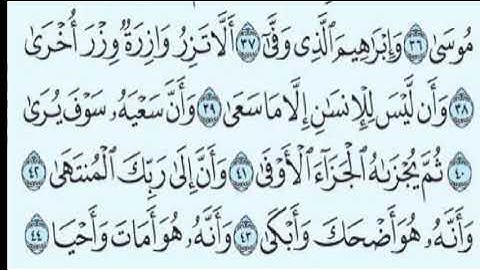 مُوسَىٰ ٣٦ وَإِبْرَاهِيمَ ٱلَّذِى وَفَّىٰٓ ٣٧ أَلَّا تَزِرُ وَازِرَةٌ وِزْرَ أُخْرَىٰ
٣٨ وَأَن لَّيْسَ لِلْإِنسَٰنِ إِلَّا مَا سَعَىٰ ٣٩ وَأَنَّ سَعْيَهُۥ سَوْفَ يُرَىٰ
٤٠ ثُمَّ يُجْزَىٰهُ ٱلْجَزَآءَ ٱلْأَوْفَىٰ ٤١ وَأَنَّ إِلَىٰ رَبِّكَ ٱلْمُنتَهَىٰ ٤٢
وَأَنَّهُۥ هُوَ أَضْحَكَ وَأَبْكَىٰ ٤٣ وَأَنَّهُۥ هُوَ أَمَاتَ وَأَحْيَا ٤٤